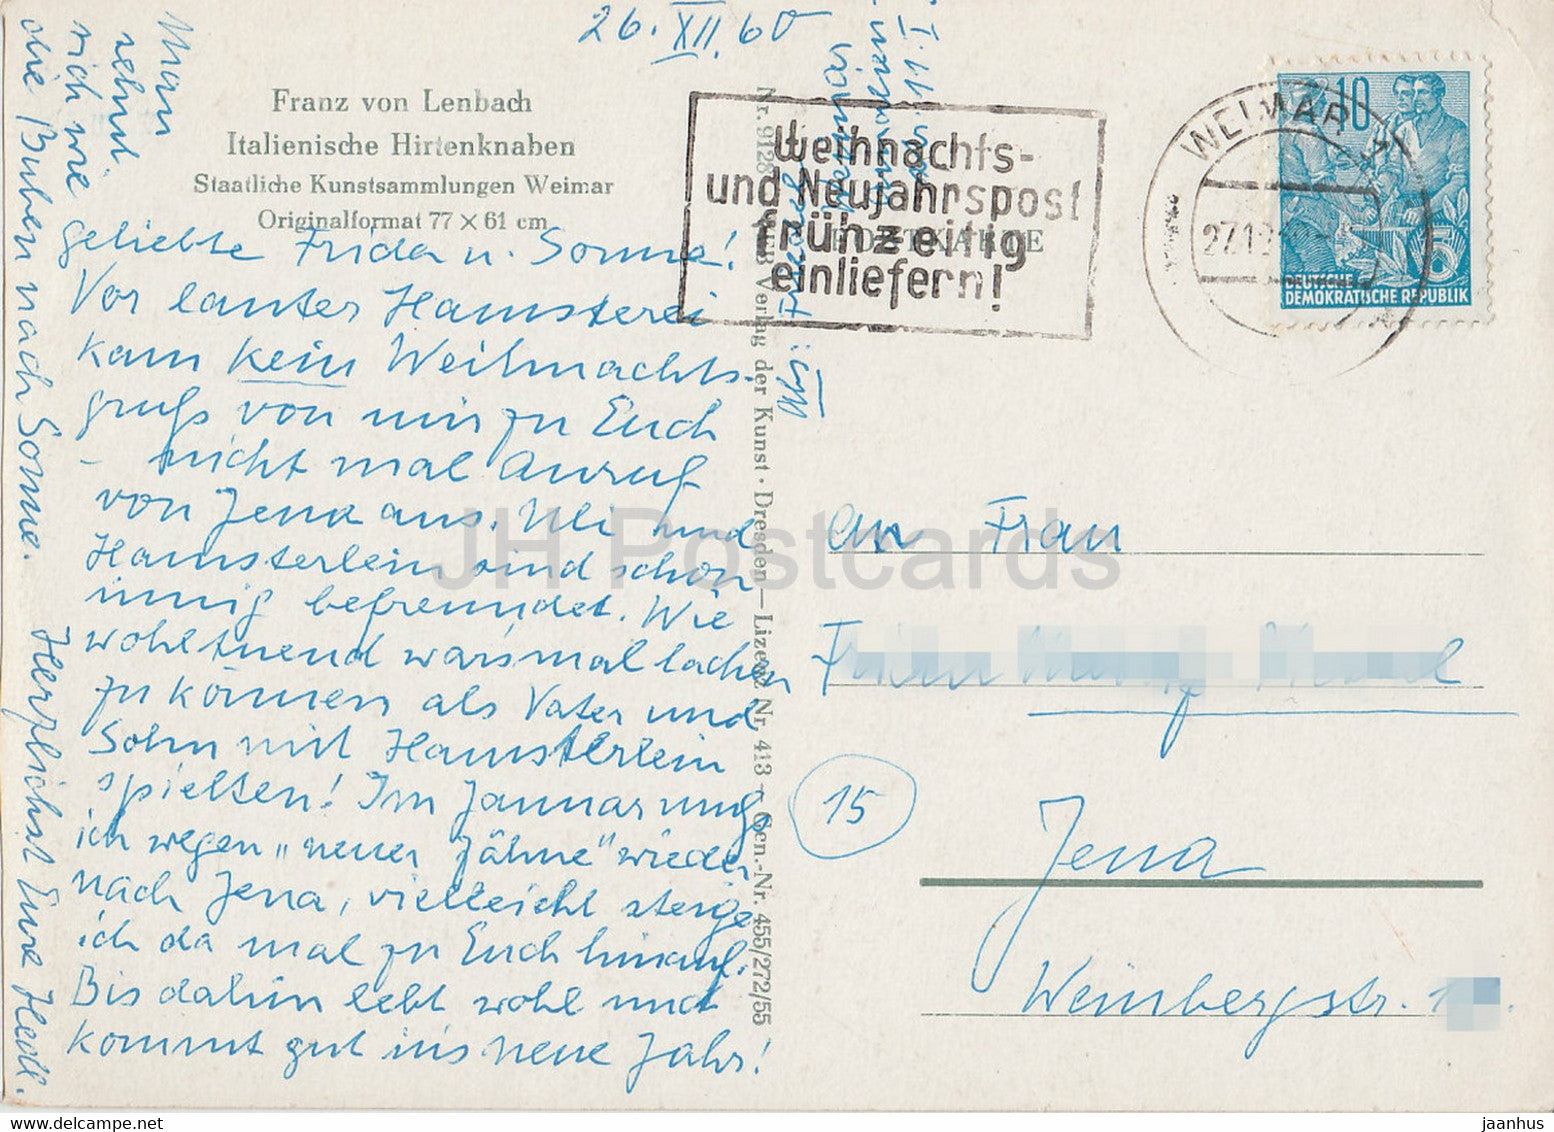 26. XII. 60
Franz von Lenbach
Italienische Hirtenknaben
Staatliche Kunstsammlungen Weimar
Originalformat 77 × 61 cm
geliebte Frida u. Sonne!
Vor lauter Hamsterei
kam kein Weihnachts-
gruß von mir zu Euch
- nicht mal Anruf
von Jena aus. Uli und
Hamsterlein sind schon
innig befreundet. Wie
wohltuend war's mal lachen
zu können als Vater und
Sohn mit Hamsterlein
spielten! Im Januar muß
ich wegen „neuer Zähne" wieder
nach Jena, vielleicht steige
ich da mal zu Euch hinauf.
Bis dahin lebt wohl und
kommt gut ins neue Jahr!
Herzlichst Eure Hedl.
Man
sehnt
sich wie
die Buben nach Sonne.
Nr. 9128
Verlag der Kunst · Dresden — Lizenz Nr. 413 - Gen.-Nr. 455/272/55
Weimar
POSTKARTE
Weihnachts-
und Neujahrspost
frühzeitig
einliefern!
WEIMAR 1
27.12
10
5
DEUTSCHE
DEMOKRATISCHE REPUBLIK
An Frau
15
Jena
Weinbergstr. 1
JH Postcards
www.delcampe.net
jaanhus